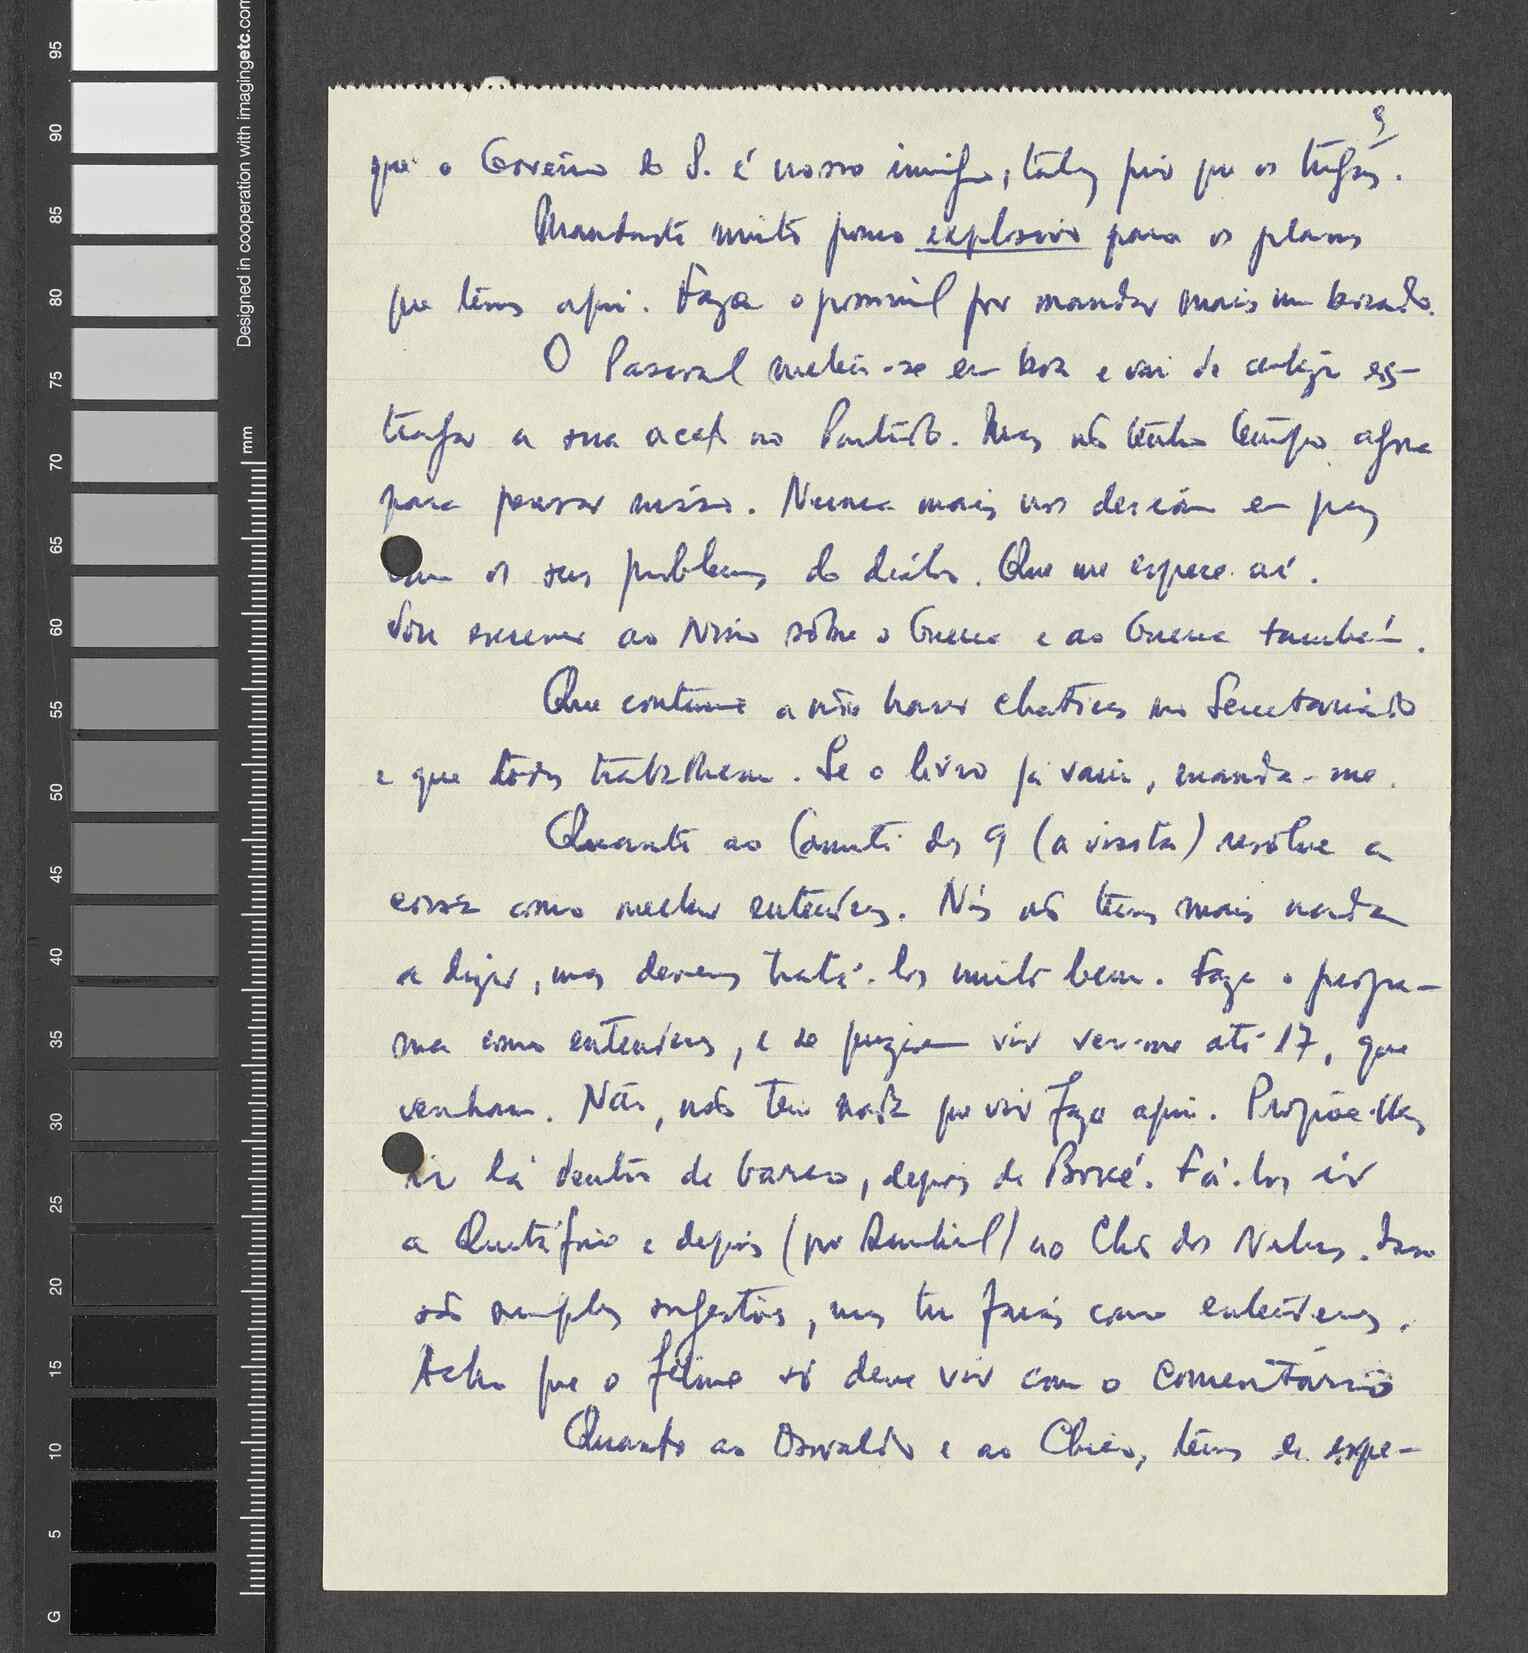 95
90
85
80
75
70
65
60
55
50
45
40
35
30
25
20
15
10
5
G
Designed in cooperation with imagingetc.com
mm
9
que o Govêrno do S. é nosso inimigo, talvez pior que os tugas.
Mandaste muito pouco explosivo para os planos
que temos aqui. Faça o possível por mandar mais um bocado.
O Pascoal meteu-se em boa e vai de certeza es-
tragar a sua acção no Partido. Mas não tenho tempo agora
para pensar nisso. Nunca mais nos deixam em paz
com os seus problemas do diabo. Que me espere aí.
Vou escrever ao Nino sôbre o Guerra e ao Guerra também.
Que continue a não haver chatices no Secretariado
e que todos trabalhem. Se o livro já saiu, manda-me.
Quanto ao Comité dos 9 (a visita) resolve a
coisa como melhor entenderes. Nós não temos mais nada
a dizer, mas devemos tratá-los muito bem. Faz o progra-
ma como entenderes, e se puderem vir ver-me até 17, que
venham. Não, não tem nada que vir faze aqui. Propõe-lhes
ir lá dentro de barco, depois de Boké. Fá-los ir
a Quitáfine e depois (por Sambail) ao Chão dos Nalus. Isso
são simples sugestões, mas tu farás como entenderes.
Acho que o filme só deve vir com o comentário
Quanto ao Osvaldo e ao Chico, temos de espe-